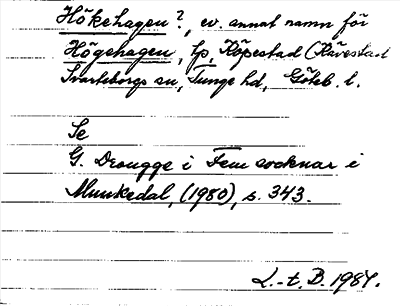 Hökehagen?, ev. annat namn för
Högehagen, lp, Röpestad (Rävestad
Svarteborgs sn, Tunge hd, Göteb. l.
Se
G. Drougge i Fem socknar i
Munkedal, (1980), s. 343.
L.-t. B. 1987.